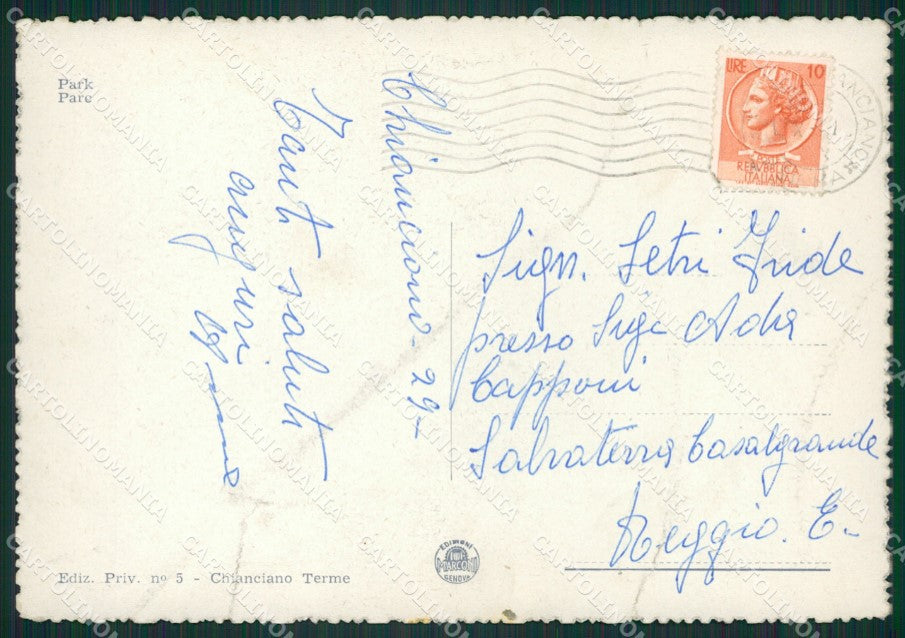 Park
Parc
Chianciano - 29-
Tanti saluti
auguri
LIRE 10
POSTE
REPVBBLICA
ITALIANA
CHIANCIANO
Sign. Setri Iride
presso Sig. Adria
Capponi
Salvaterra Casalgrande
Reggio. E-
EDIZIONI
MARCONI
GENOVA
Ediz. Priv. nº 5 - Chianciano Terme
CARTOLINOMANIA